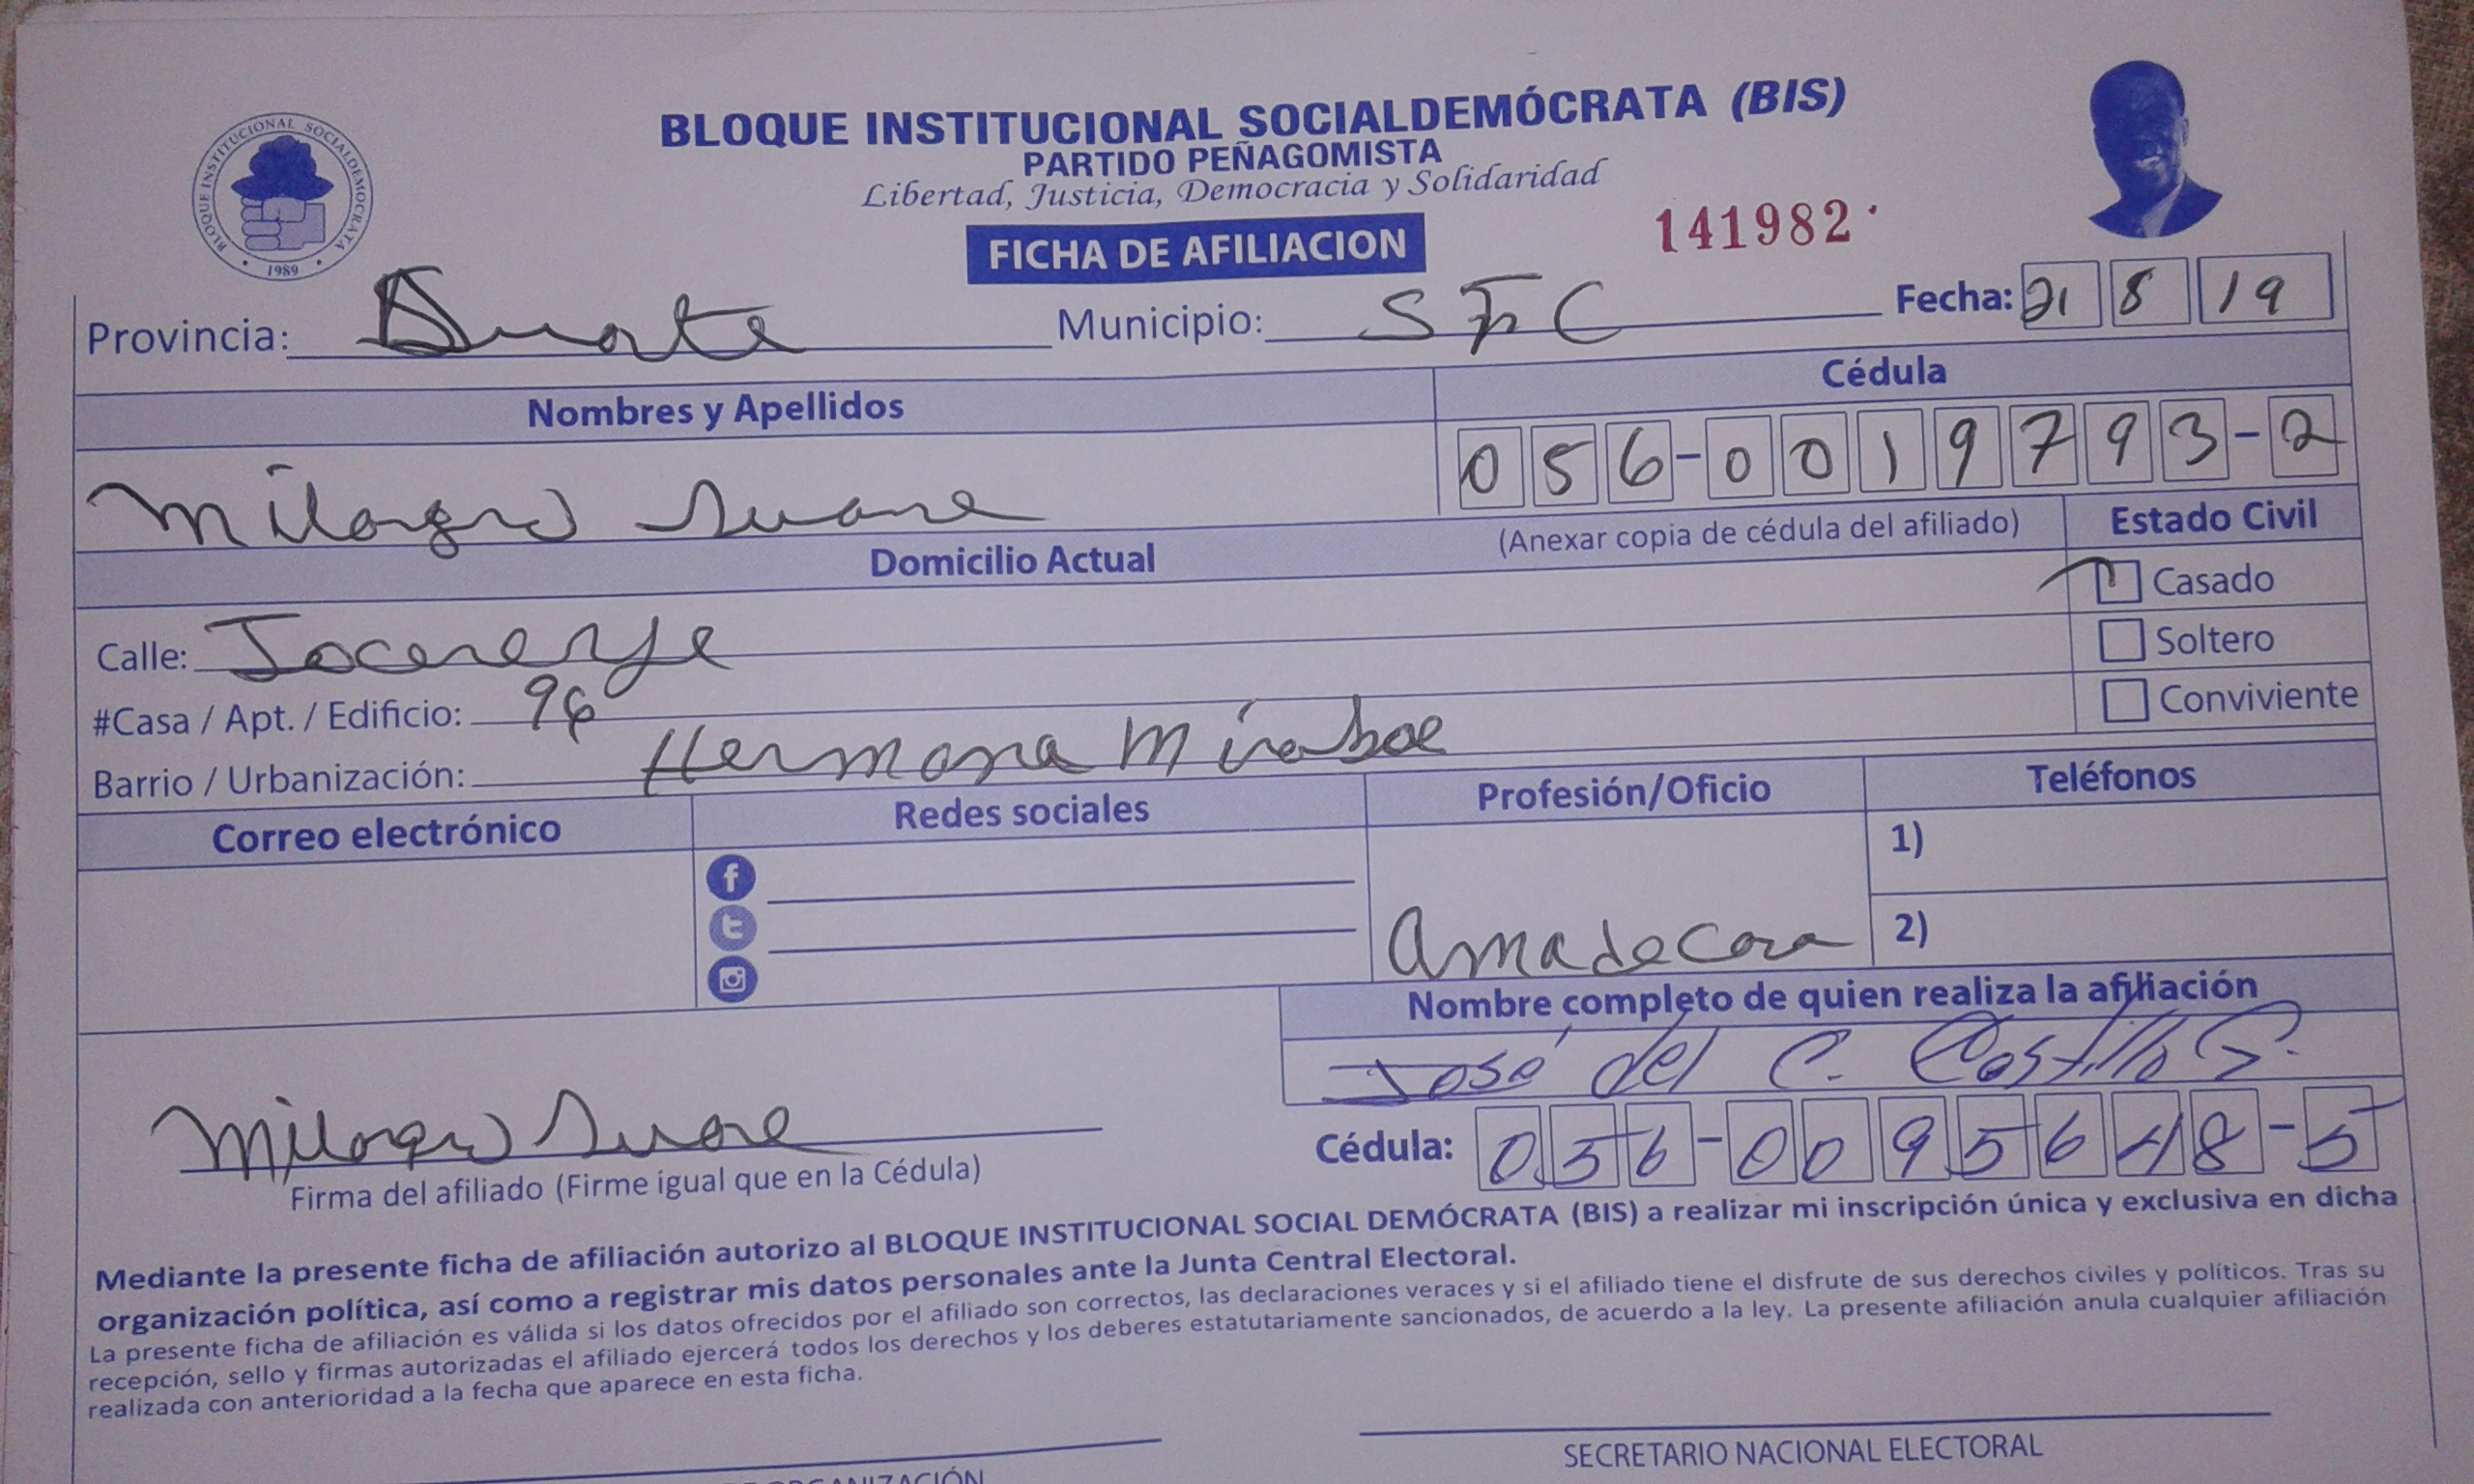 BLOQUE INSTITUCIONAL SOCIALDEMOCRATA
1989
BLOQUE INSTITUCIONAL SOCIALDEMÓCRATA (BIS)
PARTIDO PEÑAGOMISTA
Libertad, Justicia, Democracia y Solidaridad
FICHA DE AFILIACION
141982
Provincia: Duarte Municipio: SFC Fecha: 21 8 19
Nombres y Apellidos Cédula
Milagro Suare 056-0019793-2
(Anexar copia de cédula del afiliado) Estado Civil
Domicilio Actual
Casado
Calle:
Soltero
#Casa / Apt. / Edificio: 96
Conviviente
Barrio / Urbanización: Hermana Mirabal
Correo electrónico Redes sociales Profesión/Oficio Teléfonos
1)
2)
amadecasa
Nombre completo de quien realiza la afiliación
José del C. Castillo G.
Milagro Suare
Cédula: 056-0095648-5
Firma del afiliado (Firme igual que en la Cédula)
Mediante la presente ficha de afiliación autorizo al BLOQUE INSTITUCIONAL SOCIAL DEMÓCRATA (BIS) a realizar mi inscripción única y exclusiva en dicha
organización política, así como a registrar mis datos personales ante la Junta Central Electoral.
La presente ficha de afiliación es válida si los datos ofrecidos por el afiliado son correctos, las declaraciones veraces y si el afiliado tiene el disfrute de sus derechos civiles y políticos. Tras su
recepción, sello y firmas autorizadas el afiliado ejercerá todos los derechos y los deberes estatutariamente sancionados, de acuerdo a la ley. La presente afiliación anula cualquier afiliación
realizada con anterioridad a la fecha que aparece en esta ficha.
SECRETARIO NACIONAL ELECTORAL